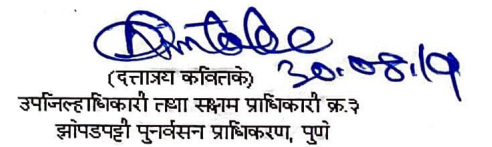 30.08.19
(दत्तात्रय कवितके)
उपजिल्हाधिकारी तथा सक्षम प्राधिकारी क्र.३
झोपडपट्टी पुनर्वसन प्राधिकरण, पुणे